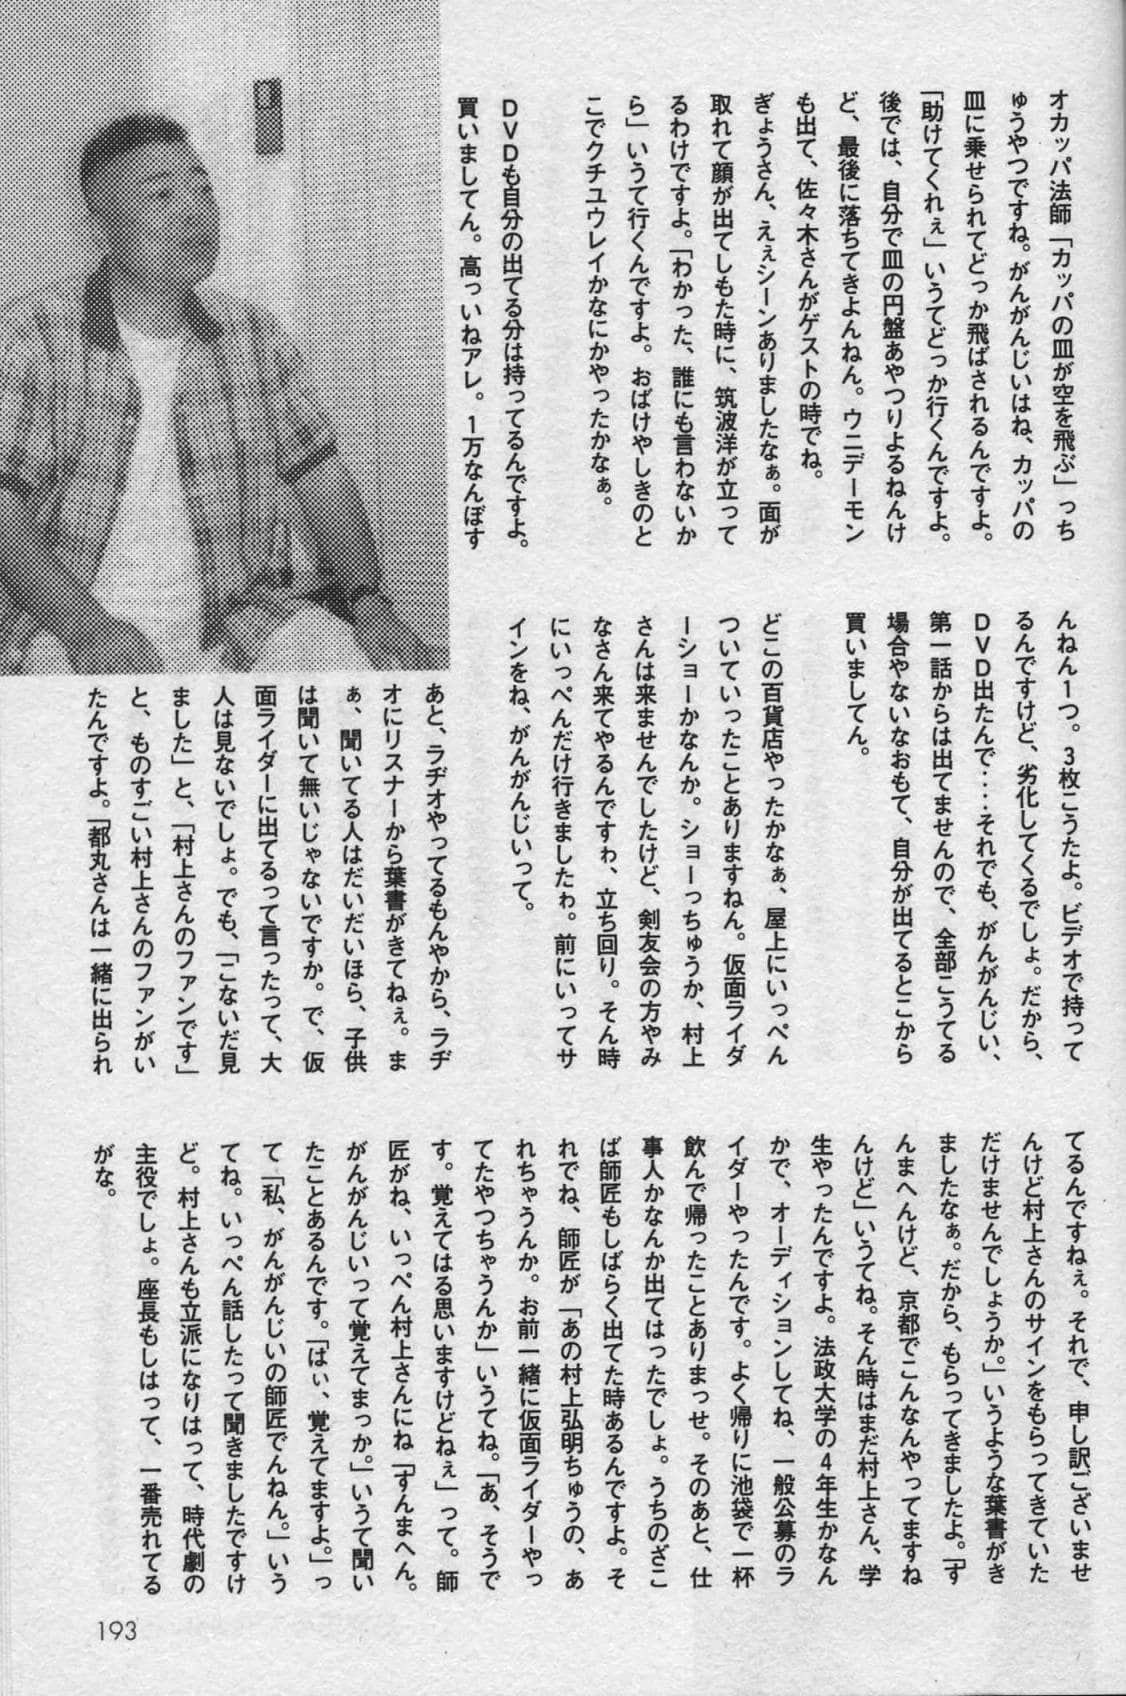 オカッパ法師「カッパの皿が空を飛ぶ」っち
ゅうやつですね。がんがんじいはね、カッパの
皿に乗せられてどっか飛ばされるんですよ。
「助けてくれぇ」いうてどっか行くんですよ。
後では、自分で皿の円盤あやつりよるねんけ
ど、最後に落ちてきよんねん。ウニデーモン
も出て、佐々木さんがゲストの時でね。
ぎょうさん、えぇシーンありましたなぁ。面が
取れて顔が出てしもた時に、筑波洋が立って
るわけですよ。「わかった、誰にも言わないか
ら」いうて行くんですよ。おばけやしきのと
こでクチユウレイかなにかやったかなぁ。
DVDも自分の出てる分は持ってるんですよ。
買いましてん。高っいねアレ。1万なんぼす
んねん1つ。3枚こうたよ。ビデオで持って
るんですけど、劣化してくるでしょ。だから、
DVD出たんで‥‥それでも、がんがんじい、
第一話からは出てませんので、全部こうてる
場合やないなおもて、自分が出てるとこから
買いましてん。
どこの百貨店やったかなぁ、屋上にいっぺん
ついていったことありますねん。仮面ライダ
ーショーかなんか。ショーっちゅうか、村上
さんは来ませんでしたけど、剣友会の方やみ
なさん来てやるんですゎ、立ち回り。そん時
にいっぺんだけ行きましたゎ。前にいってサ
インをね、がんがんじいって。
あと、ラヂオやってるもんやから、ラヂ
オにリスナーから葉書がきてねぇ。ま
ぁ、聞いてる人はだいだいほら、子供
は聞いて無いじゃないですか。で、仮
面ライダーに出てるって言ったって、大
人は見ないでしょ。でも、「こないだ見
ました」と、「村上さんのファンです」
と、ものすごい村上さんのファンがい
たんですよ。「都丸さんは一緒に出られ
てるんですねぇ。それで、申し訳ございませ
んけど村上さんのサインをもらってきていた
だけませんでしょうか。」いうような葉書がき
ましたなぁ。だから、もらってきましたよ。「す
んまへんけど、京都でこんなんやってますね
んけど」いうてね。そん時はまだ村上さん、学
生やったんですよ。法政大学の4年生かなん
かで、オーディションしてね、一般公募のラ
イダーやったんです。よく帰りに池袋で一杯
飲んで帰ったことありまっせ。そのあと、仕
事人かなんか出てはったでしょ。うちのざこ
ば師匠もしばらく出てた時あるんですよ。そ
れでね、師匠が「あの村上弘明ちゅうの、あ
れちゃうんか。お前一緒に仮面ライダーやっ
てたやつちゃうんか」いうてね。「あ、そうで
す。覚えてはる思いますけどねぇ」って。師
匠がね、いっぺん村上さんにね「すんまへん。
がんがんじいって覚えてまっか。」いうて聞い
たことあるんです。「はぃ、覚えてますよ。」っ
て「私、がんがんじいの師匠でんねん。」いう
てね。いっぺん話したって聞きましたですけ
ど。村上さんも立派になりはって、時代劇の
主役でしょ。座長もしはって、一番売れてる
がな。
193